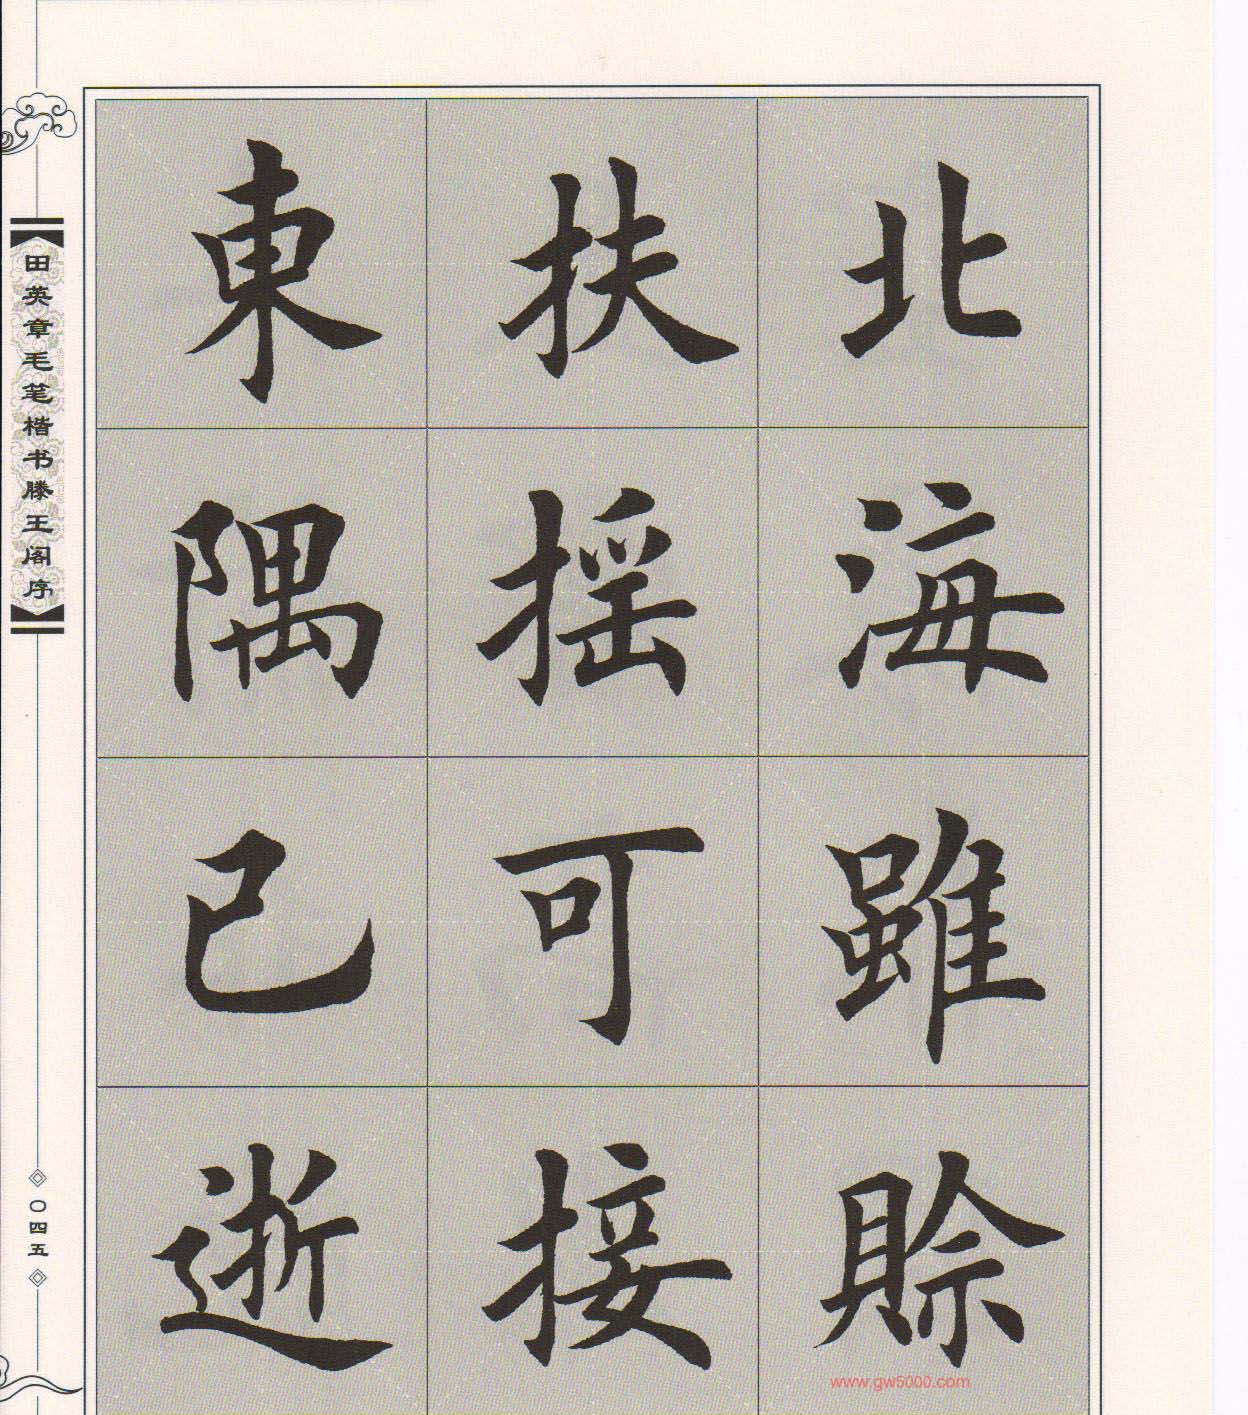 北海雖賒
扶摇可接
東隅已逝
田英章毛笔楷书滕王阁序
〇四五
www.gw5000.com